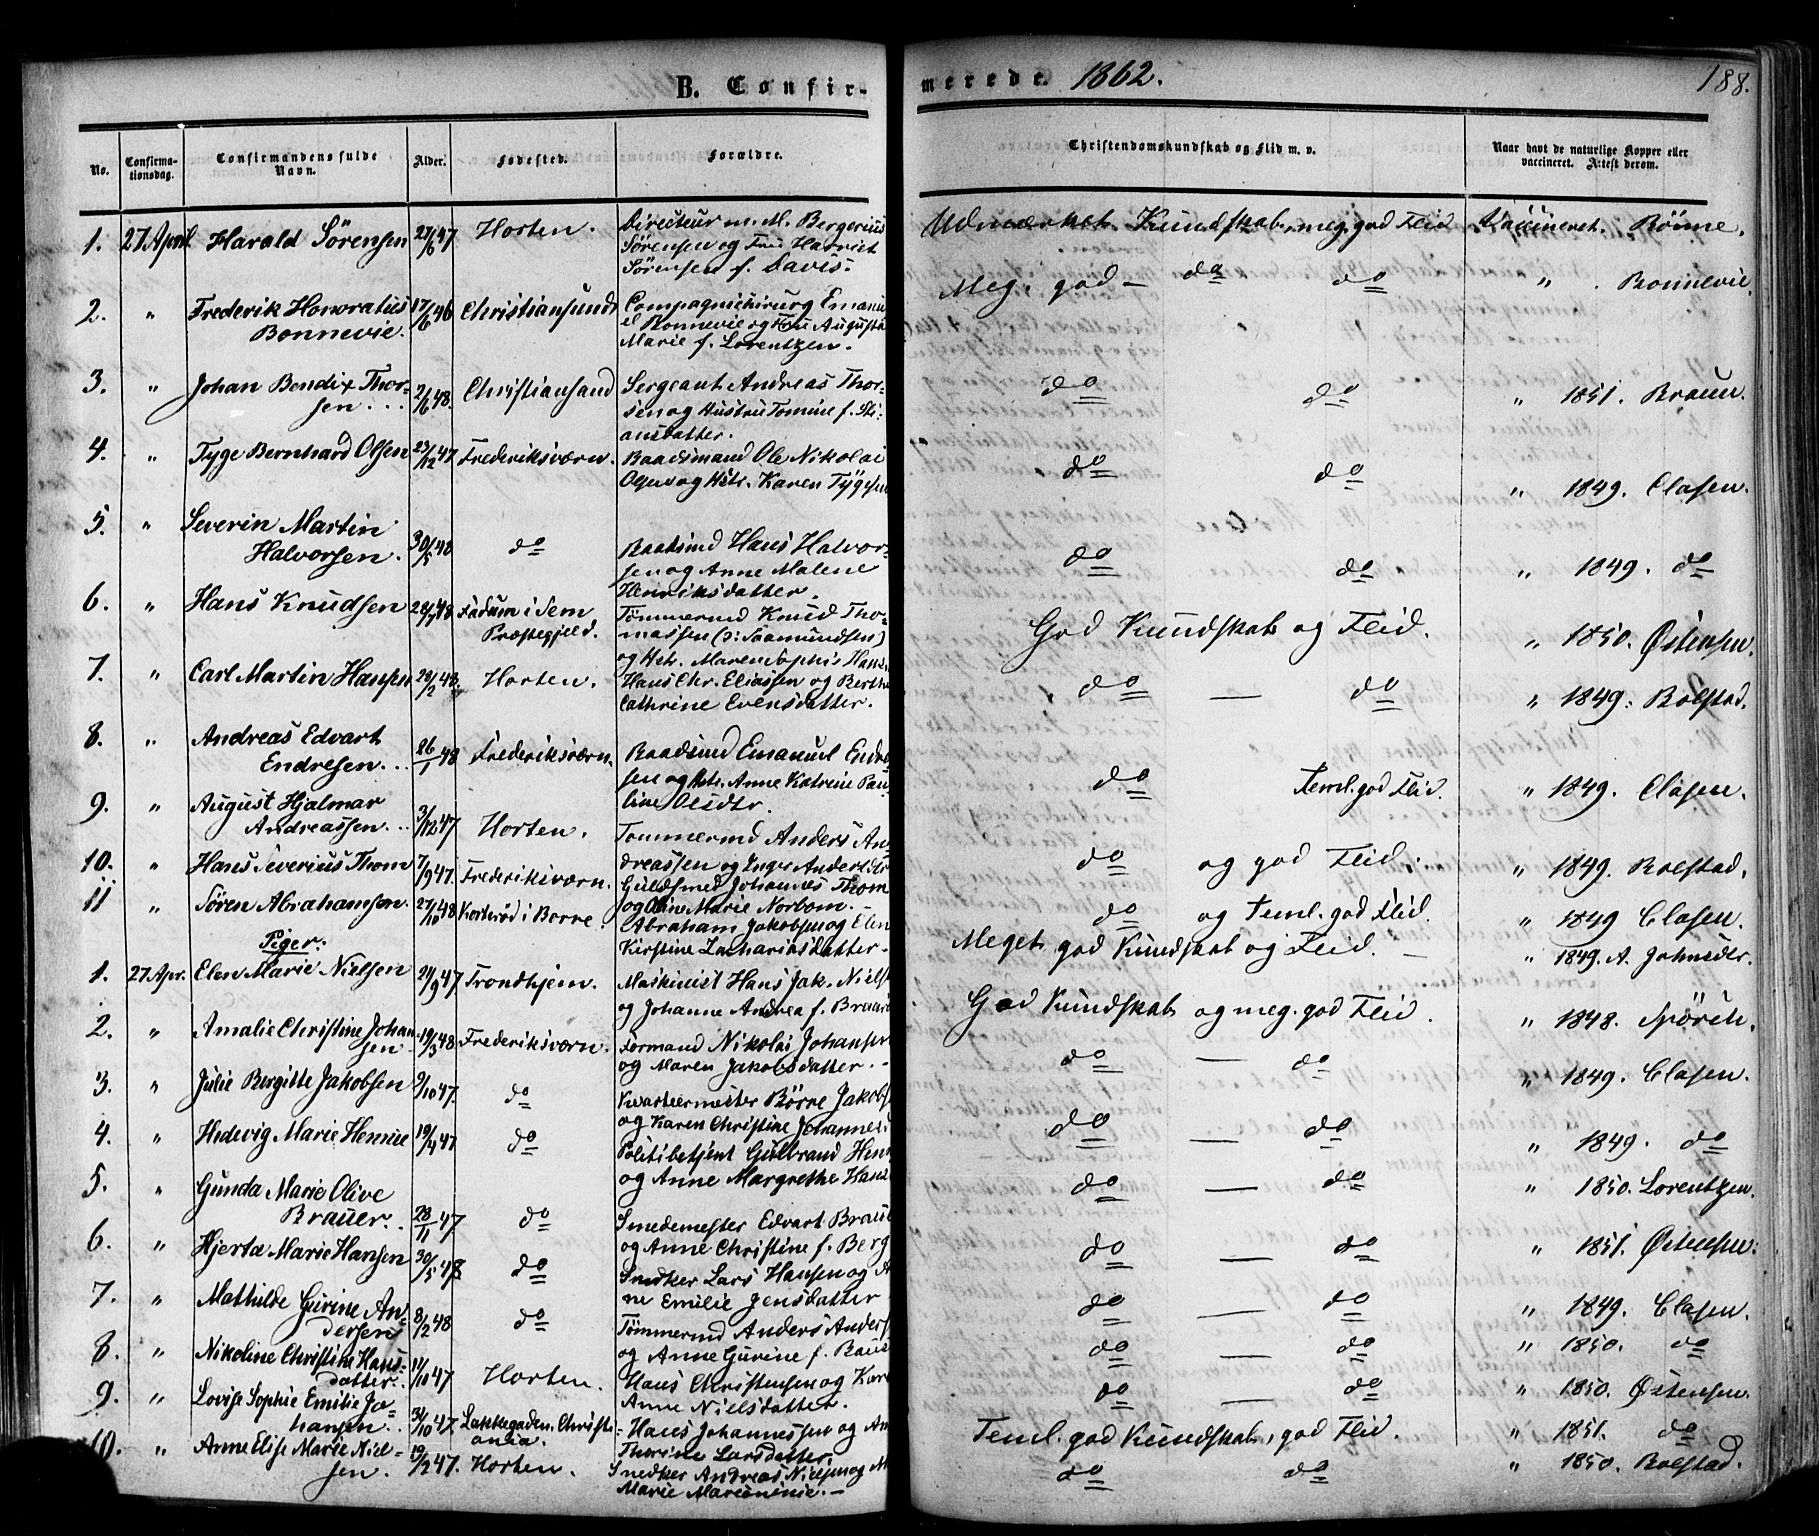 B. Confir-
merede. 1862.
188.
No.
Confirma-
tionsdag.
Confirmandens fulde
Navn.
Alder.
Fødested.
Forældre.
Christendomskundskab og Flid m. v.
Naar havt de naturlige Kopper eller
vaccineret. Attest derom.
1. 27 April. Harald Sörensen 27/6 47 Horten.
Directeur m. M. Bergerius
Sörensen og Fru Hadriet
Sörensen f. Davis.
Udmærket Kundskab, meg. god Flid
Vaccineret. Rönne.
2. " Frederik Honoratus
Bonnevie. 17/6 46 Christiansund
Compagnichirurg Emanu-
el Bonnevie og Fru Augusta
Marie f. Lorentzen.
Meg. god - do do " Bonnevie.
3. " Johan Bendix Thor-
sen... 2/6 48. Christiansand
Sergeant Andreas Thor-
sen og Hustru Tomine f. Sti-
ansdatter.
do do " 1851. Braun.
4. " Tyge Bernhard Olsen 23/12 47 Frederiksværn.
Baadsmand Ole Nikolai
Olsen og Hstr. Karen Tygesen
do do " 1849. Clasen.
5. " Severin Martin
Halvorsen. 30/5 48 do
Baadsmd Hans Halvor-
sen og Anne Malene
Henriksdatter.
do do " 1849. do
6. " Hans Knudsen 28/7 48. Fadum i Sem
Præstegjeld.
Tömmermd Knud Tho-
massen (ɔ: Saamundsen)
og Hstr. Maren Sophie Hans.
God Kundskab og Flid.
" 1850. Østensen.
7. " Carl Martin Hansen 28/2 48. Horten.
Hans Chr. Eliassen og Berthe
Cathrine Evensdatter.
do — do " 1849. Bolstad.
8. " Andreas Edvart
Endresen... 26/1 48 Frederiksværn.
Baadsmd Emanuel Endre-
sen og Hstr. Anne Katrine Pau-
line Olsdtr.
do Teml. god Flid. " 1849. Clasen.
9. " August Hjalmar
Andreassen... 3/12 47 Horten.
Tommermd Anders An-
dreassen og Inger Andersdtr
do og god Flid. " 1849. Bolstad.
10. " Hans Severius Thom 7/9 47. Frederiksværn.
Guldsmed Johannes Thom
og Oline Marie Norbom. —
do og Teml. god Flid. " 1849 Clasen.
11 " Sören Abrahamsen. 27/10 48 Korterød i Borre.
Abraham Jakobsen og Elen
Kirstine Zachariasdatter. —
Meget god Kundskab og Flid. —
" 1849. A. Johnsdtr.
Piger:
1. 27 Apr. Elen Marie Nielsen 24/9 47 Trondhjem.
Maskinist Hans Jak. Niels
og Johanne Andrea f. Braar
God Kundskab og meg. god Flid.
" 1848. Spörck.
2. " Amalie Christine Johan-
sen 19/3 48 Frederiksværn.
Formand Nikolai Johansen
og Maren Jakobsdatter. -
do — do " 1849. Clasen.
3. " Julie Bergitte Jakobsen 9/10 47. do
Kvarteermester Börre Jakobs
og Karen Christine Johannes
do — do " 1849. do
4. " Hedevig Marie Hennie 19/4 47 do
Politibetjent Gulbrand Henn
og Anne Margrethe Hans
do — do " 1850. Lorentzen.
5. " Gunda Marie Olive
Brauer. 28/11 47 do
Smedemester Edvart Braue
og Anne Christine f. Berg
do — do " 1851. Østensen.
6. " Hjerta Marie Hansen 30/5 48 do
Snedker Lars Hansen og A
ne Emilie Jensdatter
do — do " 1849. Clasen.
7. " Mathilde Gurine An-
dersen 8/2 48 do
Tömmermd Anders Anders
og Anne Gurine f. Baus
do — do " 1850. do
8. " Nikoline Christine Hans-
datter. 14/10 47 Horten.
Hans Christensen og Kar
Anne Nielsdatter.
do — do " 1850. Østensen.
9. " Lovise Sophie Emilie Jo-
hansen. 31/10 47. Lakkegaden. Christi-
ania.
Hans Johannessen og An
Thorine Larsdatter.
Teml. god Kundskab, god Flid.
" 1851. do
10. " Anne Elise Marie Niel-
sen. 19/12 47. Horten.
Snedker Andreas Nielsen og M
Marie Marcininie. —
do do " 1850. Bolstad.